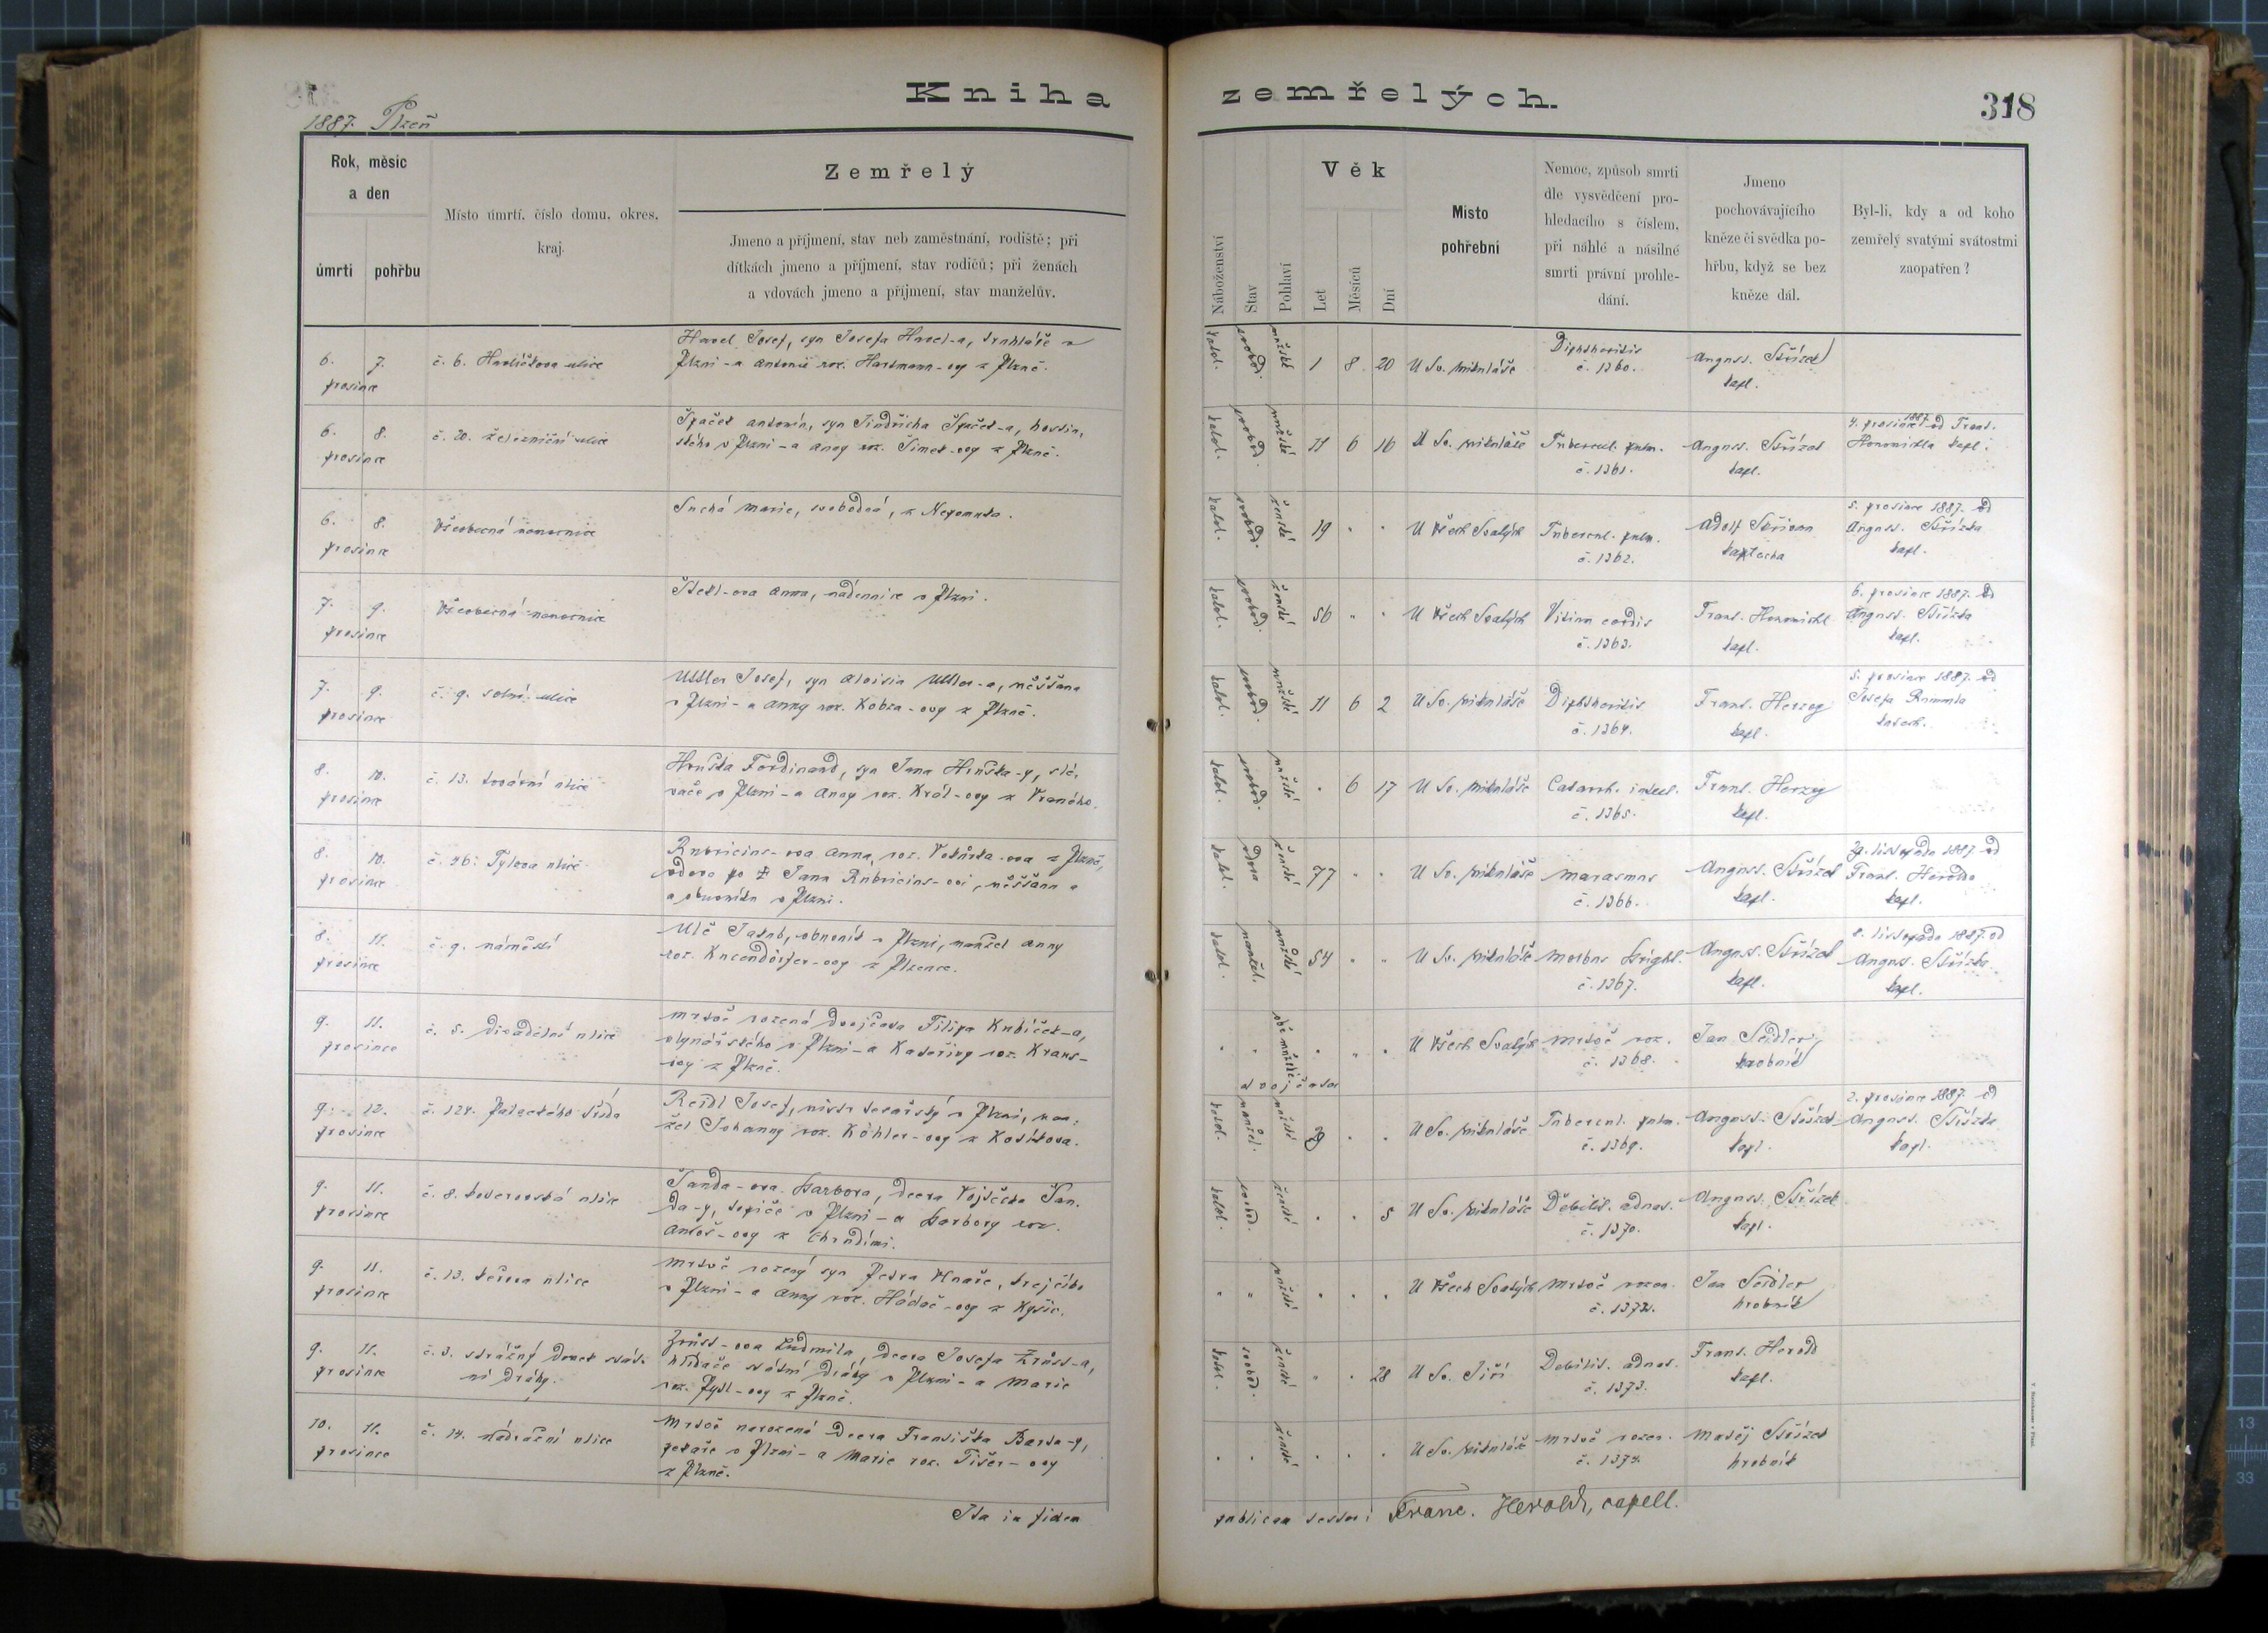 Kniha zemřelých.
318
1887. Plzeň
Rok, měsíc
a den
úmrtí
pohřbu
Místo úmrtí, číslo domu, okres,
kraj.
Zemřelý
Jmeno a příjmení, stav neb zaměstnání, rodiště; při
dítkách jmeno a příjmení, stav rodičů; při ženách
a vdovách jmeno a příjmení, stav manželův.
Náboženství
Stav
Pohlaví
Věk
Let
Měsíců
Dní
Místo
pohřební
Nemoc, způsob smrti
dle vysvědčení pro-
hledacího s číslem,
při náhlé a násilné
smrti právní prohle-
dání.
Jmeno
pochovávajícího
kněze či svědka po-
hřbu, když se bez
kněze dál.
Byl-li, kdy a od koho
zemřelý svatými svátostmi
zaopatřen?
6. 7.
prosince
č. 6. Havlíčkova ulice
Havel Josef, syn Josefa Havel-a, truhláře v
Plzni - a Antonie roz. Hartmann-ovy z Plzně.
katol. svobod. mužské 1 8 20
U Sv. Mikuláše
Diphtheritis
č. 1360.
August. Střízek
kapl.
6. 8.
prosince
č. 20. železniční ulice
Špaček Antonín, syn Jindřicha Špaček-a, hostin-
ského v Plzni - a Anny roz. Šimek-ovy z Plzně.
katol. svobod. mužské 11 6 16
U Sv. Mikuláše
Tubercul. pulm.
č. 1361.
August. Střízek
kapl.
4. prosince 1887 od Frant.
kapl.
6. 8.
prosince
Všeobecná nemocnice
Suchá Marie, svobodná, z Nepomuka.
katol. svobod. ženské 19
U Všech Svatých
Tubercul. pulm.
č. 1362.
Adolf
5. prosince 1887. od
August. Střízka
kapl.
7. 9.
prosince
Všeobecná nemocnice
Štekl-ova Anna, nádennice v Plzni.
katol. svobod. ženské 56
U Všech Svatých
Vitium cordis
č. 1363.
Frant.
kapl.
6. prosince 1887. od
August. Střízka
kapl.
7. 9.
prosince
č. 9. solní ulice
Josef, syn Aloisia měšťana
v Plzni - a Anny roz. Kobza-ovy z Plzně.
katol. svobod. mužské 11 6 2
U Sv. Mikuláše
Diphtheritis
č. 1364.
Frant. Herzog
kapl.
5. prosince 1887. od
Josefa
katech.
8. 10.
prosince
č. 13. tovární ulice
Hruška Ferdinand, syn Jana Hruška-y, slé-
vače v Plzni - a Anny roz. Král-ovy z
katol. svobod. mužské 6 17
U Sv. Mikuláše
Catarrh. intest.
č. 1365.
Frant. Herzog
kapl.
8. 10.
prosince
č. 46. Tylova ulice
Rubricius-ova Anna, roz. z Plzně,
vdova po † Janu Rubricius-ovi, měšťanu a
a obuvníku v Plzni.
katol. vdova ženské 77
U Sv. Mikuláše
Marasmus
č. 1366.
August. Střízek
kapl.
29. listopadu 1887 od
Frant. Herolda
kapl.
8. 11.
prosince
č. 9. náměstí
Ulč Jakub, obuvník v Plzni, manžel Anny
roz. z Plzence.
katol. manžel. mužské 54
U Sv. Mikuláše
Morbus Bright.
č. 1367.
August. Střízek
kapl.
8. listopadu 1887. od
August. Střízka
kapl.
9. 11.
prosince
č. 5. Divadelní ulice
Mrtvě rozená dvojčata Filipa Kubíček-a,
v Plzni - a Kateřiny roz. Kraus-
ovy z Plzně.
obě mužské
dvojčata
U Všech Svatých
Mrtvě roz.
č. 1368.
Jan Seidler
hrobník
9. 12.
prosince
č. 124. Palackého třída
Reidl Josef, v Plzni, man-
žel Johanny roz. Köhler-ovy z
katol. manžel. mužské
U Sv. Mikuláše
Tubercul. pulm.
č. 1369.
August. Střízek
kapl.
2. prosince 1887. od
August. Střízka
kapl.
9. 11.
prosince
č. 8. ulice
Šanda-ova Barbora, dcera Vojtěcha Šan-
da-y, topiče v Plzni - a Barbory roz.
Antoš-ovy z Chrudimi.
katol. svobod. ženské 5
U Sv. Mikuláše
Debilit. adnat.
č. 1370.
August. Střízek
kapl.
9. 11.
prosince
č. 13. ulice
Mrtvě rozený syn Petra krejčího
v Plzni - a Anny roz. Hádač-ovy z Kyšic.
mužské
U Všech Svatých
Mrtvě rozen.
č. 1372.
Jan Seidler
hrobník
9. 11.
prosince
č. 3. strážný domek stát-
ní dráhy.
Ludmila, dcera Josefa
hlídače státní dráhy v Plzni - a Marie
roz. z Plzně.
katol. svobod. ženské 28
U Sv. Jiří
Debilit. adnat.
č. 1373.
Frant. Herold
kapl.
10. 11.
prosince
č. 14. nádražní ulice
Mrtvě narozená dcera Františka Barta-y,
pekaře v Plzni - a Marie roz. Fišer-ovy
z Plzně.
ženské
U Sv. Mikuláše
Mrtvě rozen.
č. 1374.
Matěj Střízek
hrobník
Ita in fidem
publicam testor: Franc. Herold, capell.